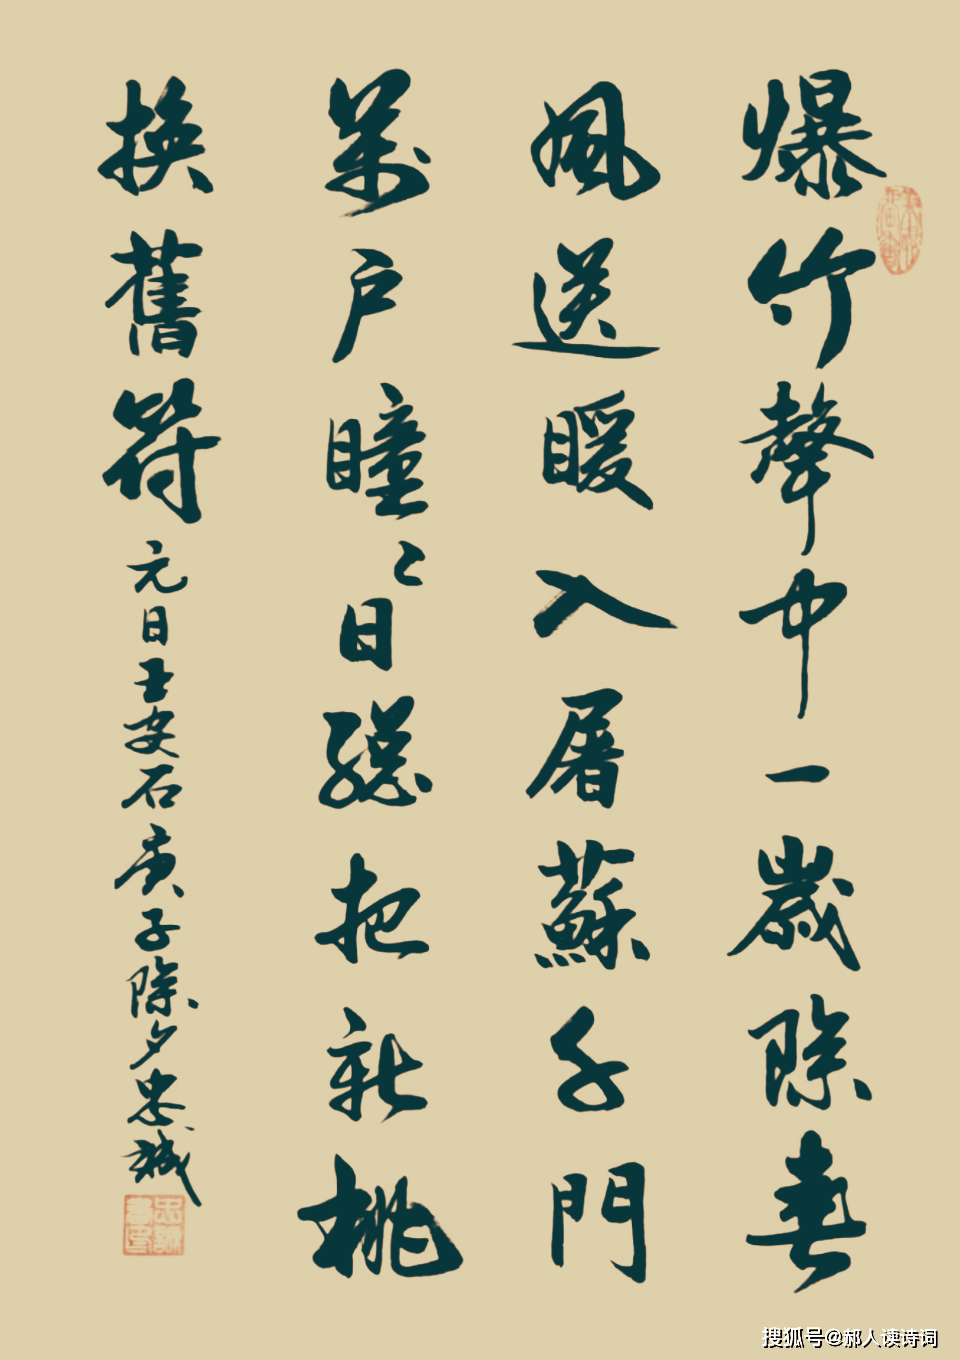 爆竹聲中一歲除春
風送暖入屠蘇千門
萬戶瞳〻日總把新桃
換舊符
元日王安石庚子除夕忠誠
搜狐号@郝人读诗词